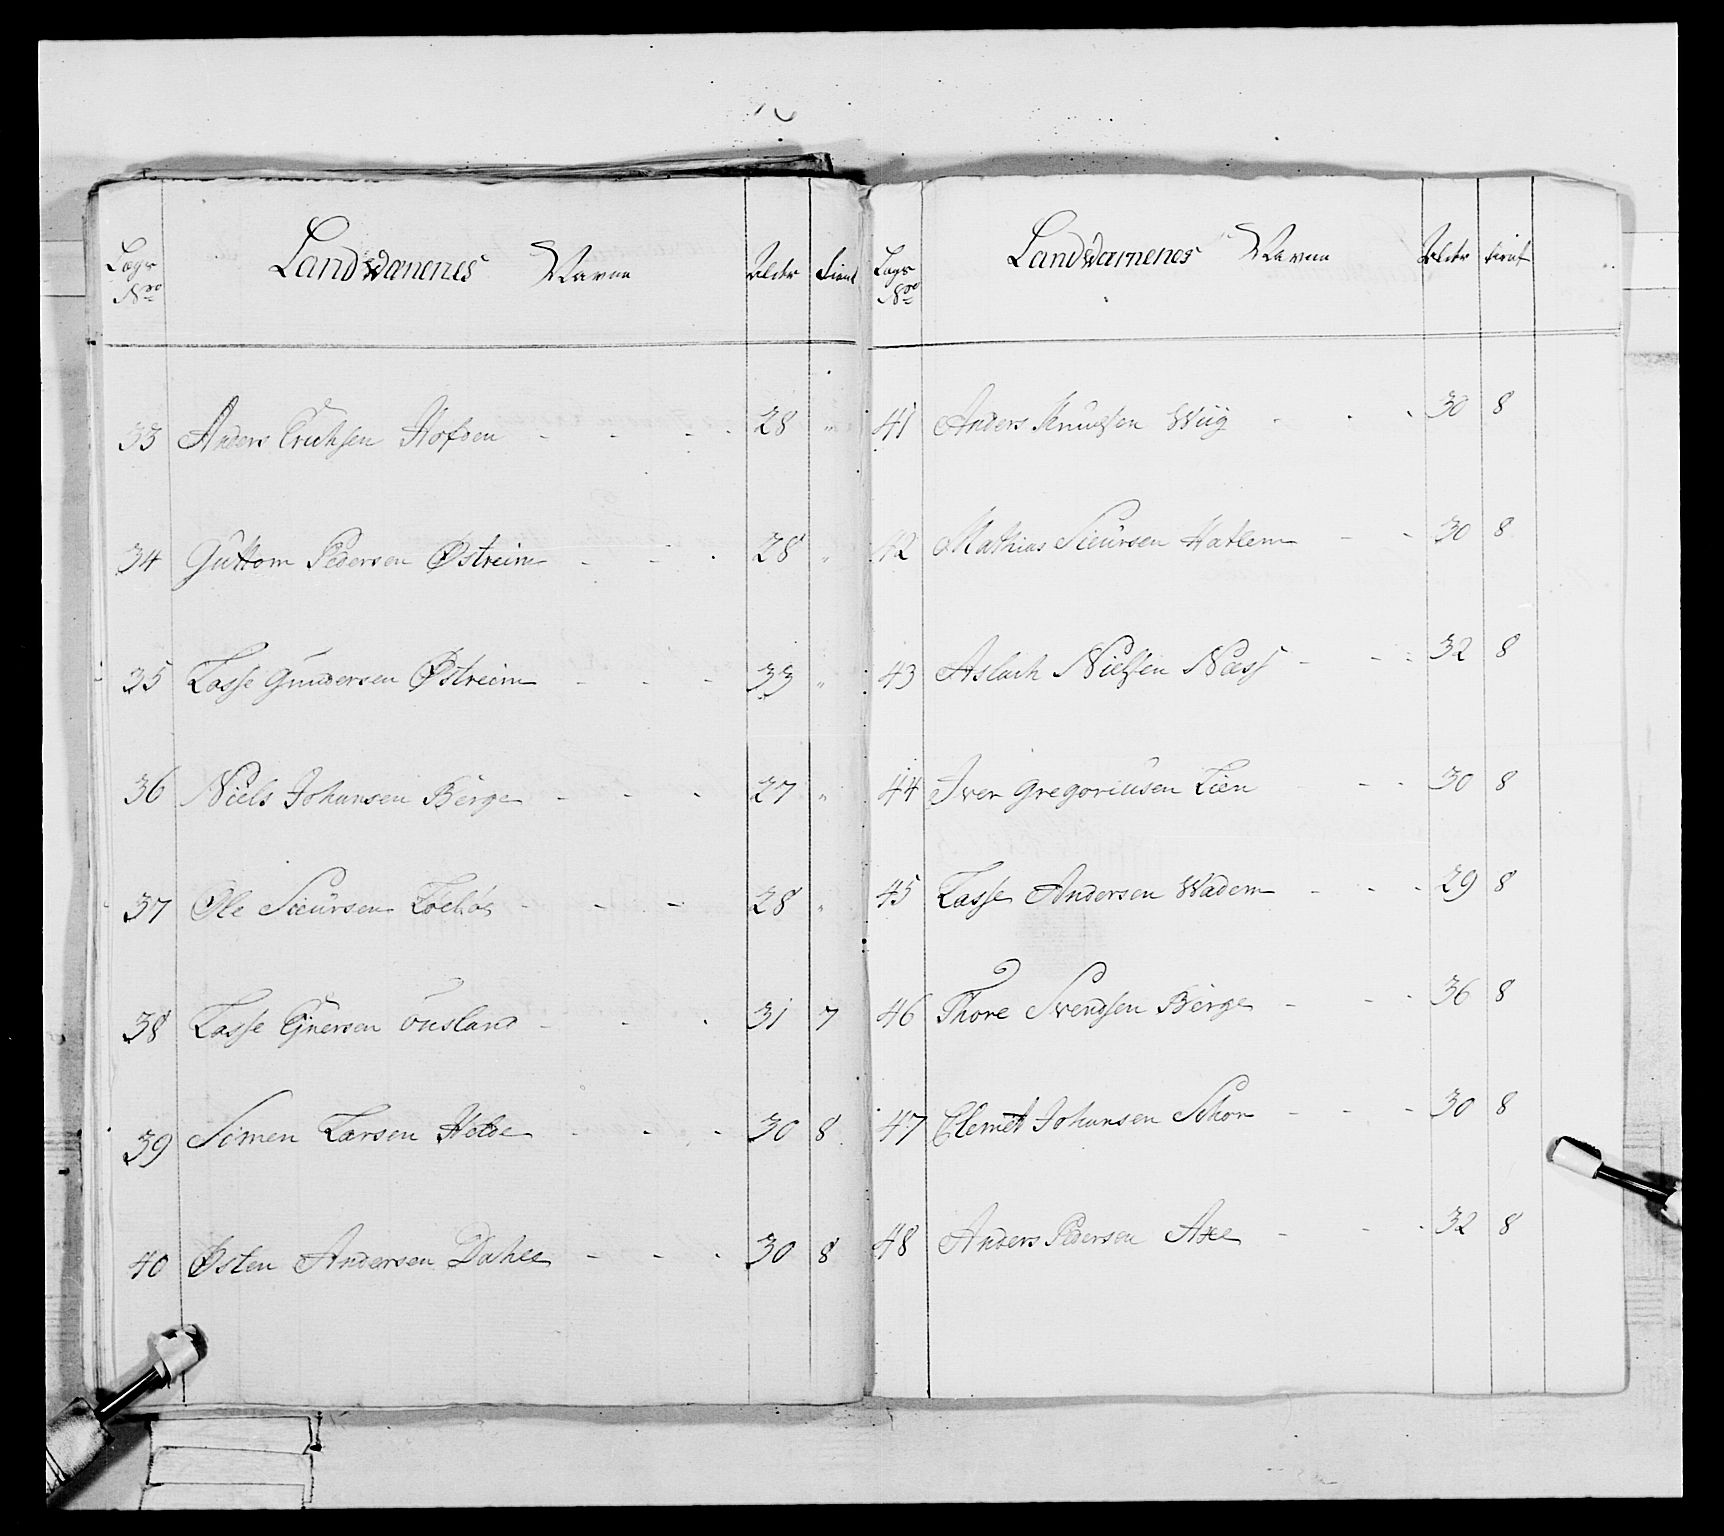 Lægs No Landwærnenes Navne Alder tient
33 Anders Erichsen Hofden - - - - 28 "
34 Guttorm Pedersen Østreim - - - 28 "
35 Lasse Gundersen Østreim - - - 33 "
36 Niels Johansen Berge - - - 27 "
37 Ole Sieursen - - - 28 "
38 Lasse Ejnersen Ousland - - - 31 7
39 Simen Larsen - - - 30 8
40 Østen Andersen Dahle - - - 30 8
Lægs No Landwærnenes Navne Alder tient
41 Anders Knudsen Wiig - - - 30 8
42 Mathias Sieursen Hatlem - - 30 8
43 Aslach Nielsen Næss - - - 32 8
44 Iver Gregoriusen Lien - - 30 8
45 Lasse Andersen Wadem - - - 29 8
46 Thore Svendsen Berge - - - 36 8
47 Clemet Johansen - - - 30 8
48 Anders Pedersen Axe - - - 32 8